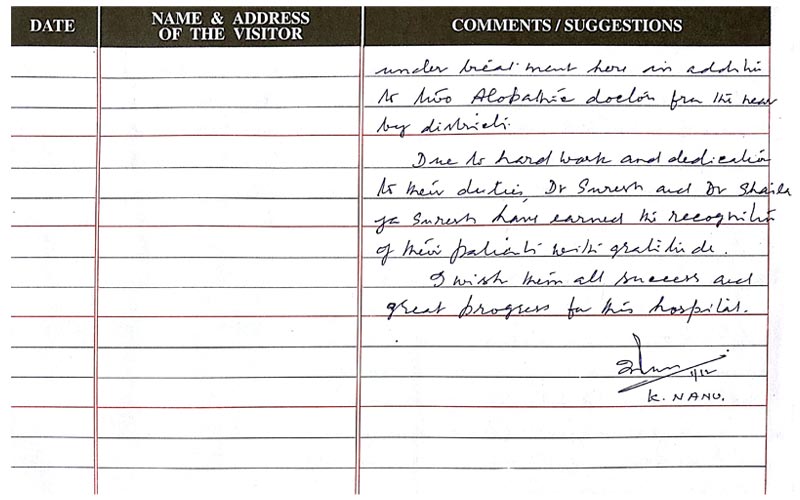 DATE
NAME & ADDRESS
OF THE VISITOR
COMMENTS / SUGGESTIONS
under treatment here in addition
to two Alopathic doctors from the near
by districts.
Due to hard work and dedication
to their duties, Dr Suresh and Dr Shaila
ja Suresh have earned the recognition
of their patients with gratitude.
I wish them all success and
great progress for this hospital.
1/12
K. NANU.